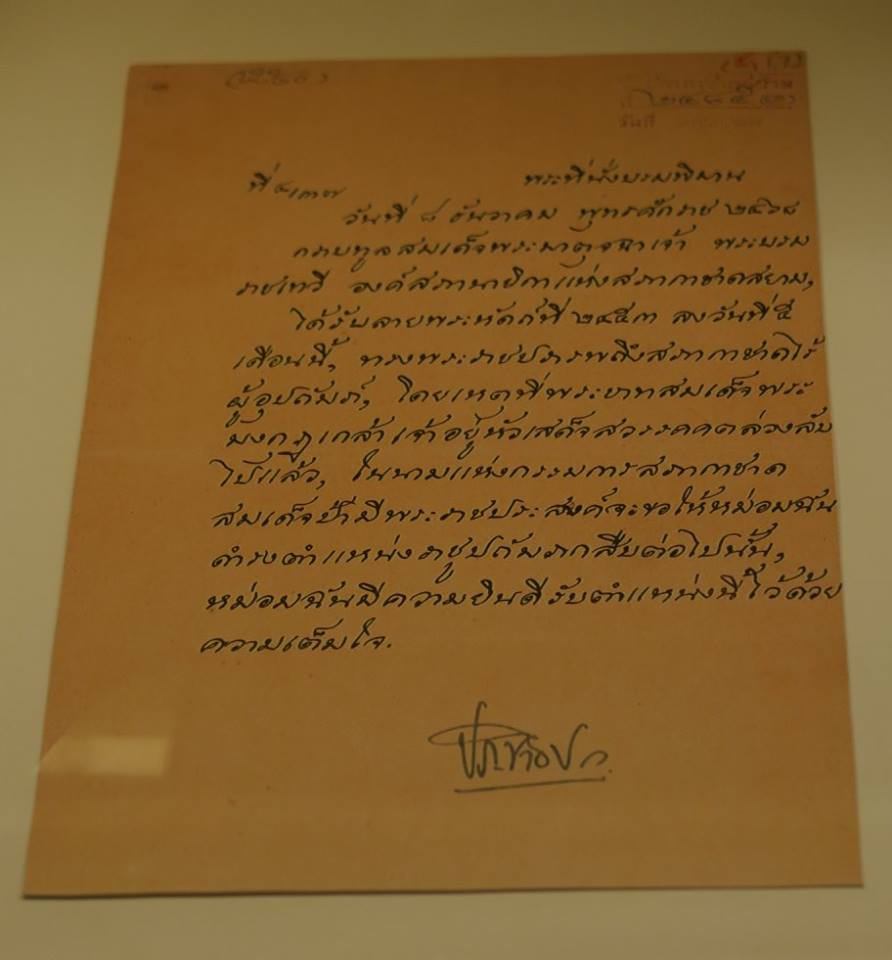 ที่ ๔/๓๗
พระที่นั่งบรมพิมาน
วันที่ ๘ ธันวาคม พุทธศักราช ๒๔๖๘
กราบทูลสมเด็จพระมาตุจฉาเจ้า พระบรม
ราชเทวี องค์สภานายิกาแห่งสภากาชาดสยาม,
ได้รับลายพระหัตถ์ที่ ๒๔๕๓ ลงวันที่ ๕
เดือนนี้, ทรงพระราชปรารพถึงสภากาชาดไร้
ผู้อุปถัมภ์, โดยเหตุที่พระบาทสมเด็จพระ
มงกุฎเกล้าเจ้าอยู่หัวเสด็จสวรรคคตล่วงลับ
ไปแล้ว, ในนามแห่งกรรมการสภากาชาด
สมเด็จป้ามีพระราชประสงค์จะขอให้หม่อมฉัน
ดำรงตำแหน่งราชูปถัมภกสืบต่อไปนั้น,
หม่อมฉันมีความยินดีรับตำแหน่งนี้ไว้ด้วย
ความเต็มใจ.
ประชาธิปก.